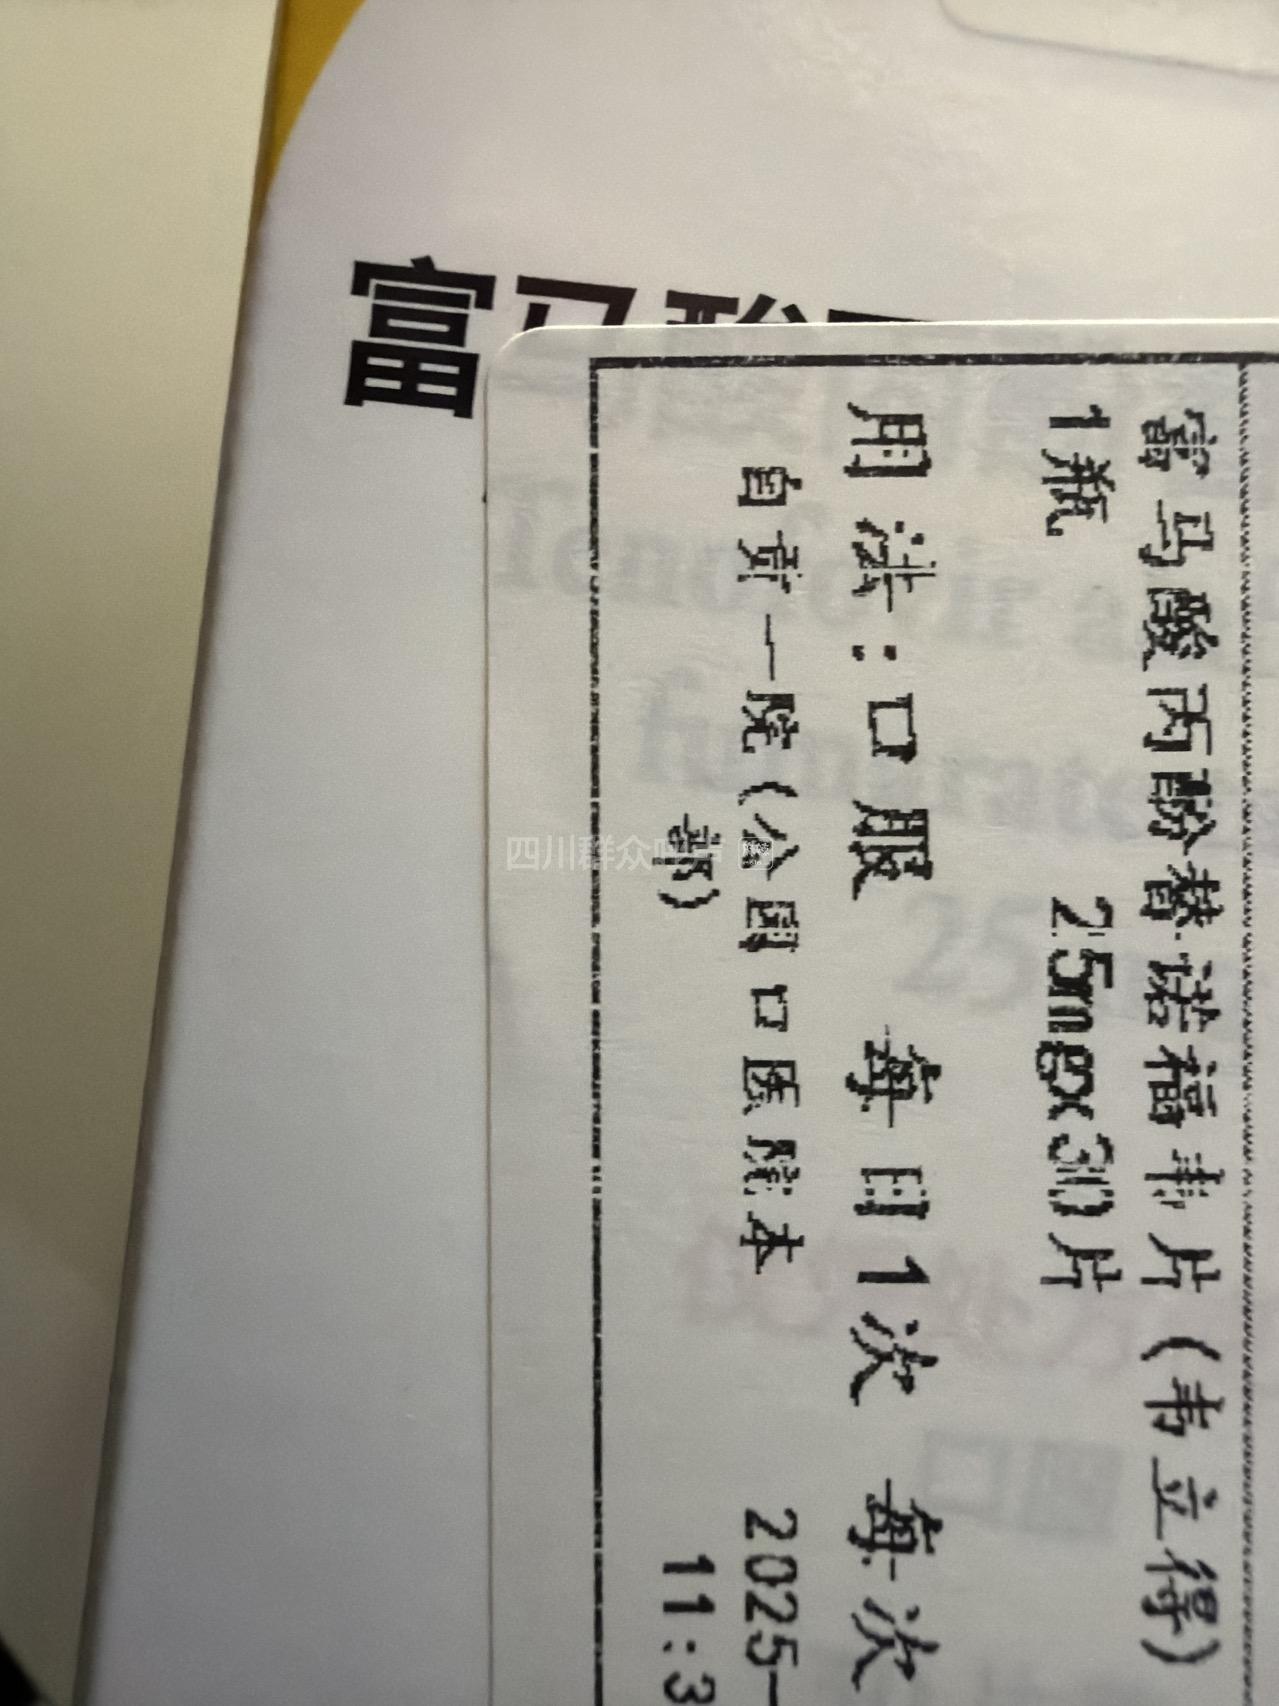 富马酸丙
富马酸丙酚替诺福韦片（韦立得）
1瓶 25mgx30片
用法：口服 每日1次 每次
自贡一院（公园口医院本 2025-
部） 11:3
Tenofovir a
fumarate
25
四川群众呼声 网